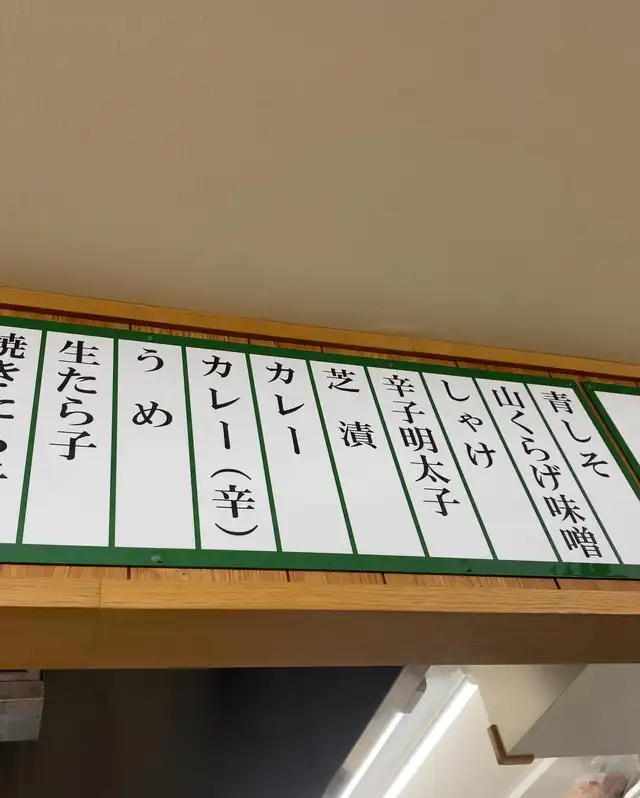 青しそ
山くらげ味噌
しゃけ
辛子明太子
芝漬
カレー
カレー(辛)
うめ
生たら子
焼きたら子